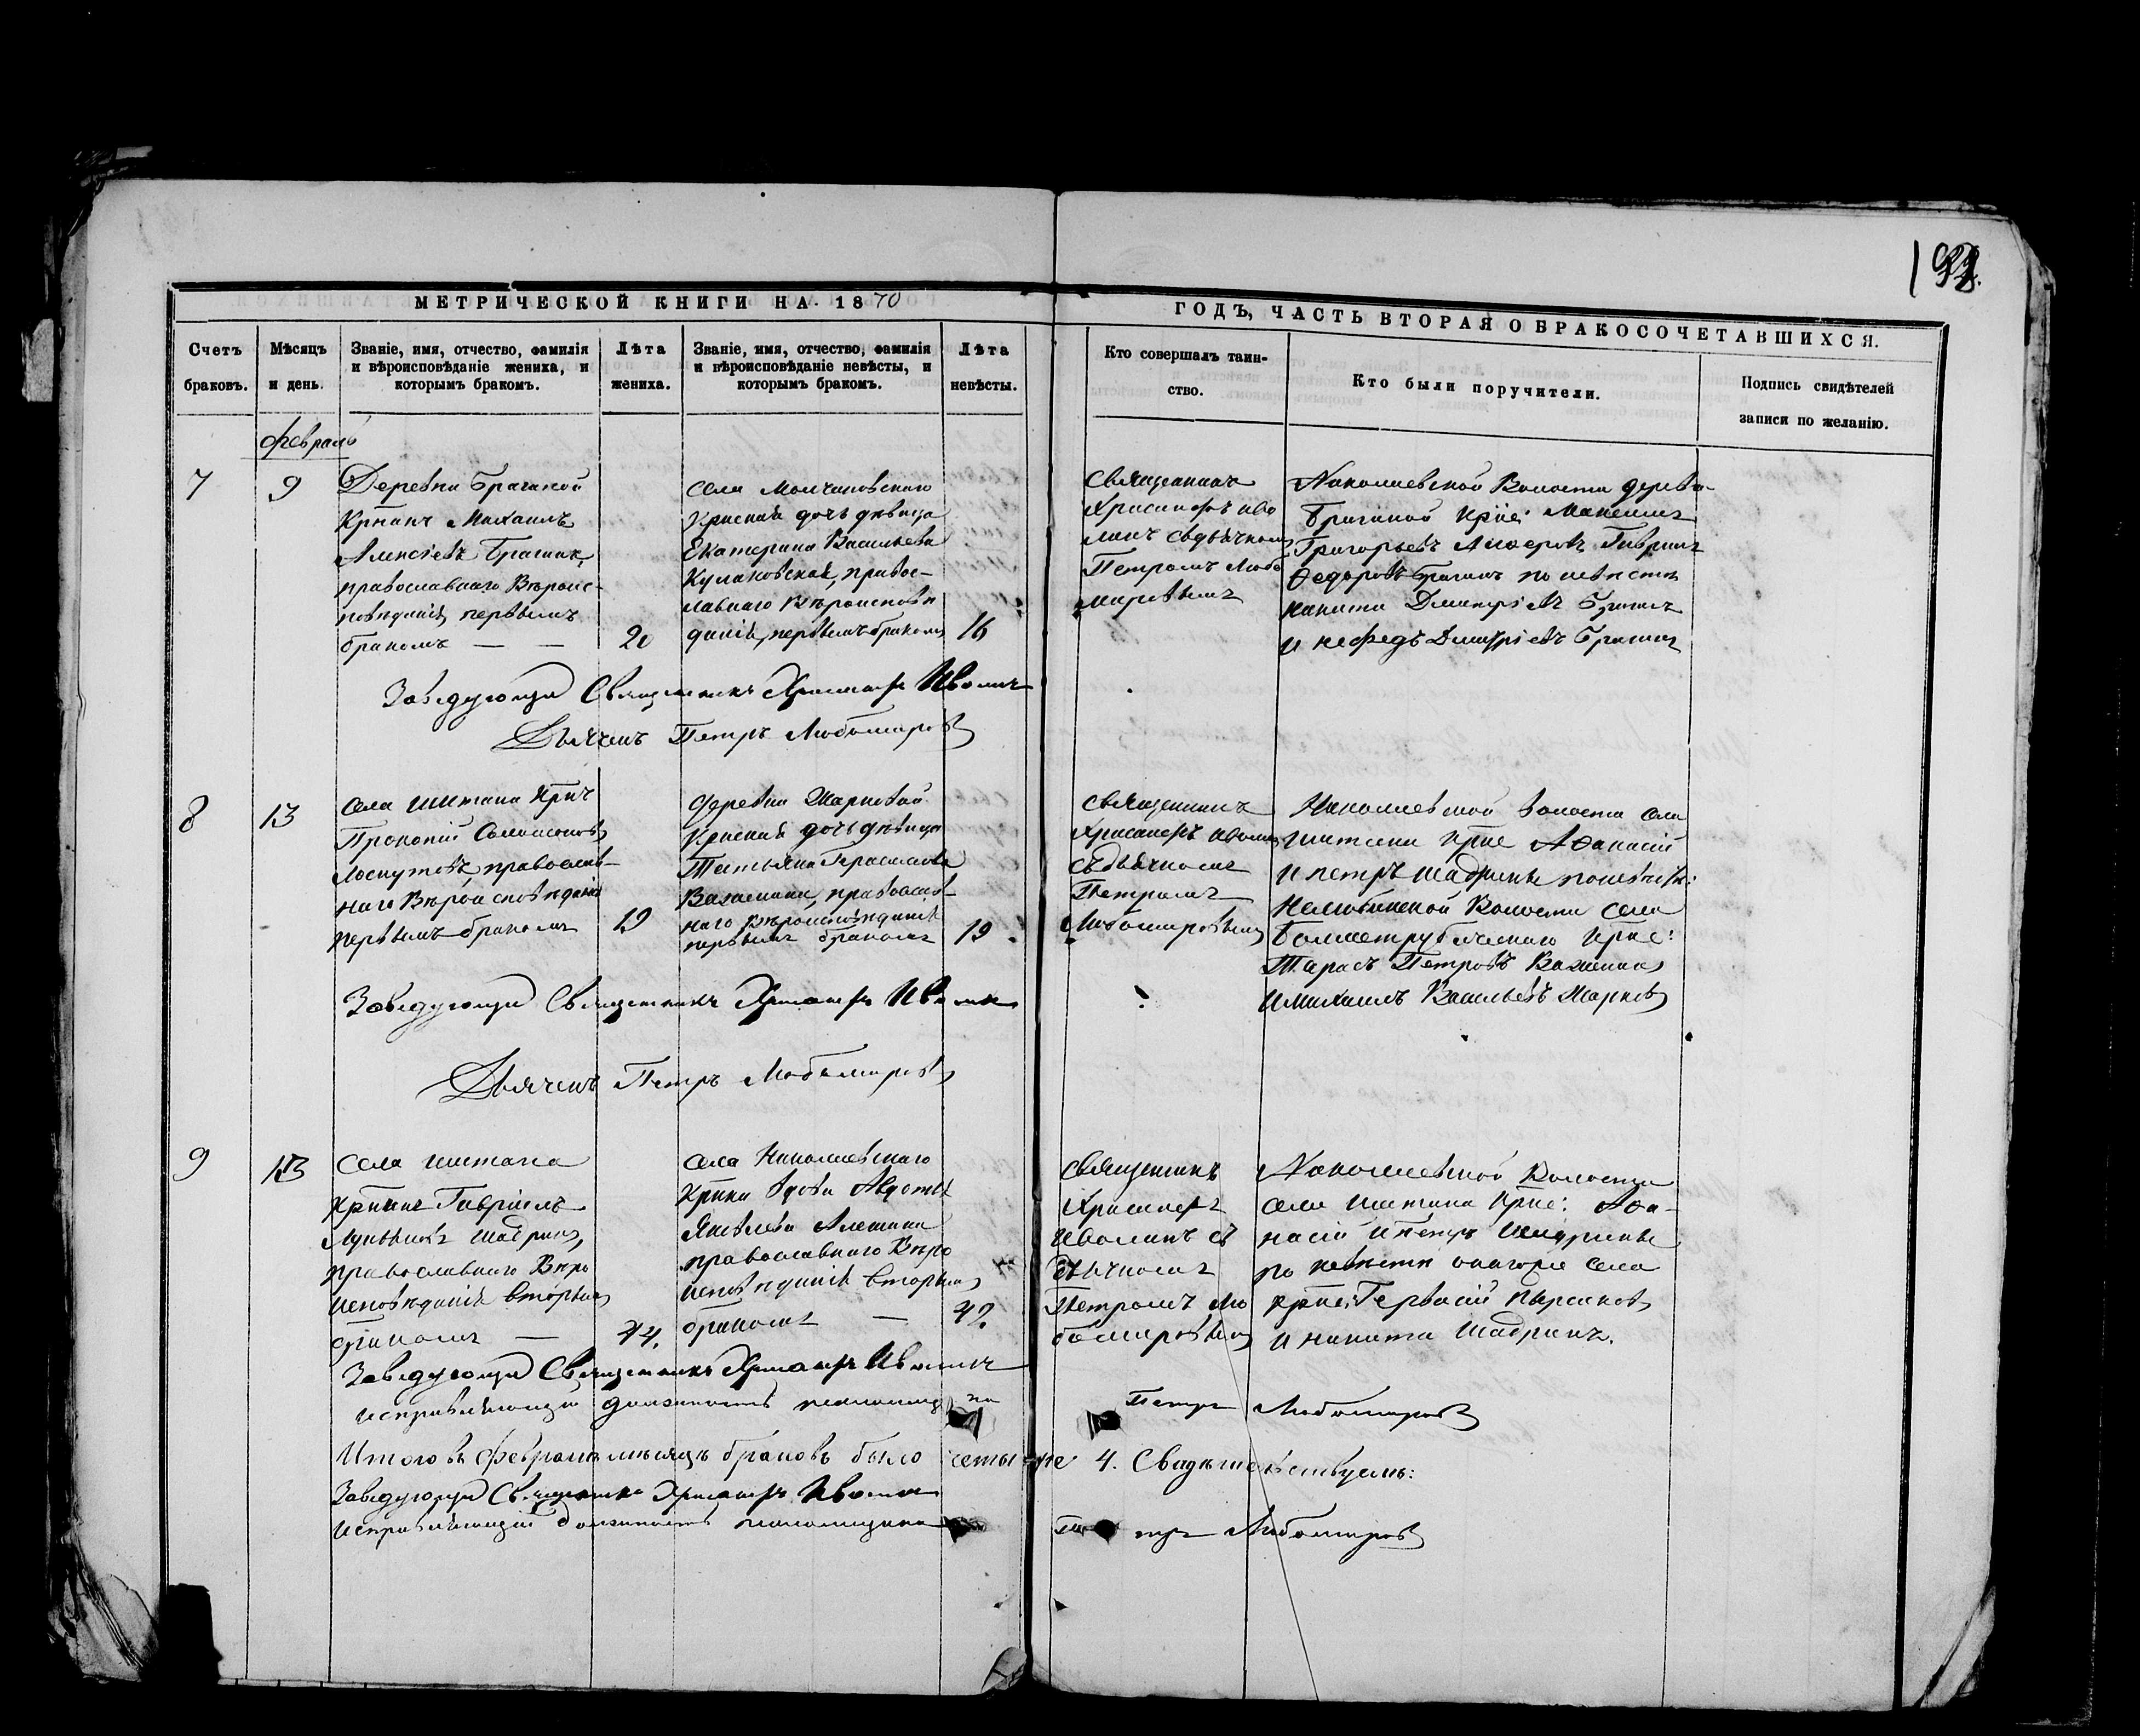 193.
МЕТРИЧЕСКОЙ КНИГИ НА 1870
ГОДЪ, ЧАСТЬ ВТОРАЯ О БРАКОСОЧЕТАВШИХСЯ.
Счетъ браковъ.
Мѣсяцъ и день.
Званіе, имя, отчество, фамилія
и вѣроисповѣданіе жениха, и
которымъ бракомъ.
Лѣта жениха.
Званіе, имя, отчество, фамилія
и вѣроисповѣданіе невѣсты, и
которымъ бракомъ.
Лѣта невѣсты.
Кто совершалъ таин-
ство.
Кто были поручители.
Подпись свидѣтелей
записи по желанію.
февраль
7
9
Деревни Брагиной
Крнинъ Михаилъ
Алексіевъ Брагинъ,
православнаго Вѣроис-
повѣданія, первымъ
бракомъ — —
20
села Молчановскаго
Крнская дочь дѣвица
Екатерина Васильева
Кулаковская, правос-
лавнаго Вѣроисповѣ
данія, первымъ бракомъ
16
Священникъ
Хрисанфъ Иво
линъ съ дьячкомъ
Петромъ Любо
мировымъ
Николаевской Волости дерев-
Брагиной крне:
Григорьевъ Гавриилъ
Федоровъ Брагинъ по невѣстѣ
Никита Дмитріевъ Брагинъ
и Нефедъ Дмитріевъ Брагинъ
Заведующій Священникъ Хрисанфъ Иволинъ
Дьячекъ Петръ Любомировъ
8
13
Села Иштана Крнъ
Прокопій
Лоскутовъ, православ-
наго Вѣроисповѣданія
первымъ бракомъ
19
Деревни Жарковой
Крнская дочь дѣвица
Татьяна Герасимова
Важенина, православ-
наго Вѣроисповѣданія
первымъ бракомъ
19.
Священникъ
Хрисанфъ Иволинъ
съ дьячкомъ
Петромъ
Любомировымъ
Николаевской Волости села
Иштана Крне Афанасій
и Петръ Шадрины по невѣстѣ:
Нелюбинской Волости села
Крне:
Тарасъ Петровъ Важенинъ
и Михаилъ Васильевъ Жарковъ
Заведующій Священникъ Хрисанфъ Иволинъ
Дьячекъ Петръ Любомировъ
9
13
Села Иштана
Крнинъ Гавріилъ
Шадринъ,
православнаго Вѣро
исповѣданія вторымъ
бракомъ —
44.
Села Николаевскаго
Крнка вдова Авдотья
Яковлева Алешина
православнаго Вѣро
исповѣданія вторымъ
бракомъ —
42.
Священникъ
Хрисанфъ
Иволинъ съ
дьячкомъ
Петромъ Лю
бомировымъ
Николаевской Волости
села Иштана Крне: Афа-
насій и Петръ Шадрины
по невѣстѣ села
крне: Гервасій
и Никита Шадринъ.
Заведующій Священникъ Хрисанфъ Иволинъ
исправляющій должность пономаря Петръ Любомировъ
Итого въ февралѣ мѣсяцѣ браковъ было четыре 4. Свидѣтельствуемъ:
Заведующій Священникъ Хрисанфъ Иволинъ
исправляющій должность Петръ Любомировъ